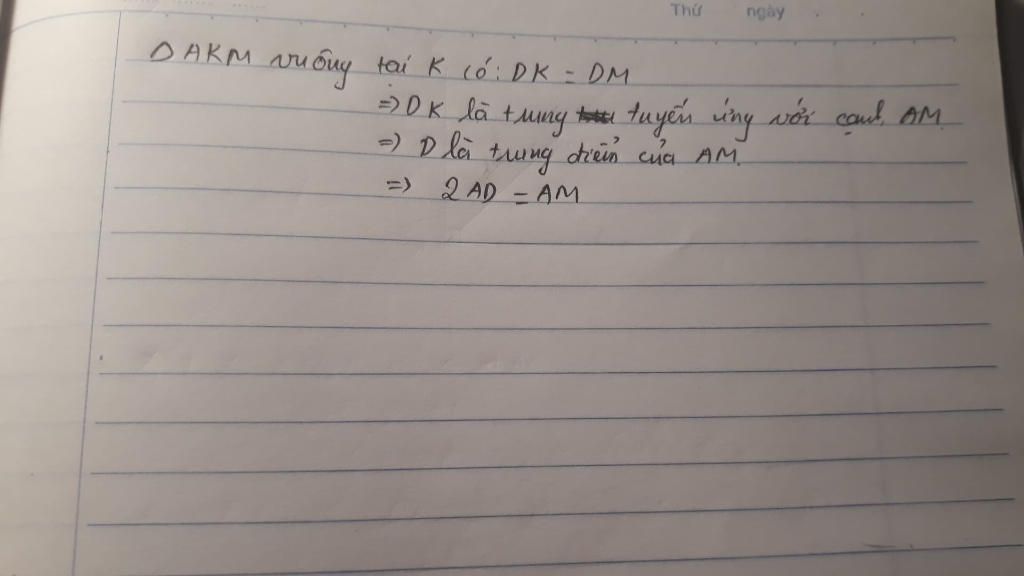 Thứ ngày
Δ AKM vuông tại K có: DK = DM
=> DK là trung tuyến ứng với cạnh AM
=> D là trung điểm của AM.
=> 2AD = AM